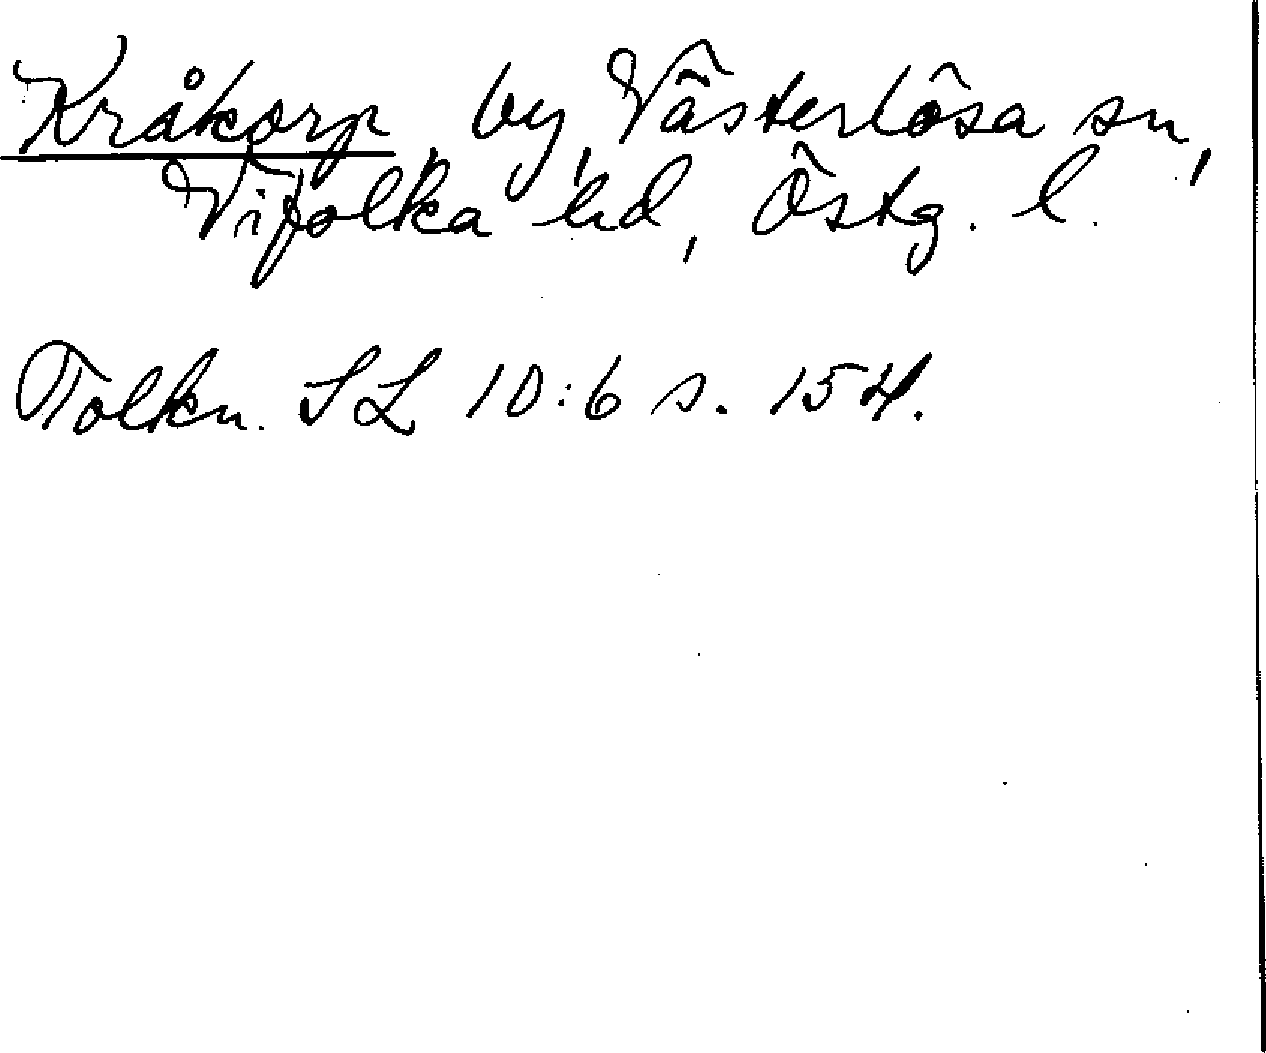 Kråkorp, by, Västerlösa sn,
Vifolka hd, Östg. l.
Tolkn. SL 10:6 s. 154.